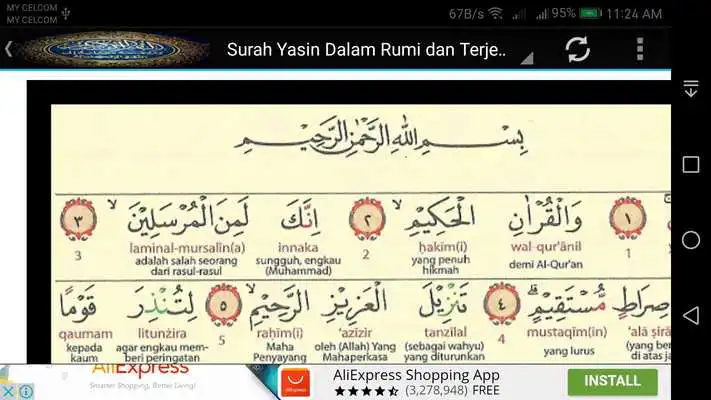 MY CELCOM
MY CELCOM
67B/s 95% 11:24 AM
Surah Yasin Dalam Rumi dan Terje..
بِسْمِ اللّٰهِ الرَّحْمٰنِ الرَّحِيْمِ
١ وَالْقُرْاٰنِ الْحَكِيْمِۙ ٢ اِنَّكَ لَمِنَ الْمُرْسَلِيْنَۙ ٣
1 wal-qur'ānil ḥakīm(i) 2 innaka laminal-mursalīn(a) 3
demi Al-Qur'an yang penuh hikmah sungguh, engkau (Muhammad) adalah salah seorang dari rasul-rasul
صِرَاطٍ مُّسْتَقِيْمٍۗ ٤ تَنْزِيْلَ الْعَزِيْزِ الرَّحِيْمِۙ ٥ لِتُنْذِرَ قَوْمًا
'alā ṣirā mustaqīm(in) 4 tanzīlal 'azīzir raḥīm(i) 5 litunżira qaumam
(yang ber di atas ja yang lurus (sebagai wahyu) yang diturunkan oleh (Allah) Yang Mahaperkasa Maha Penyayang agar engkau mem- beri peringatan kepada kaum
AliExpress
Smarter Shopping, Better Living!
AliExpress Shopping App
(3,278,948) FREE
INSTALL